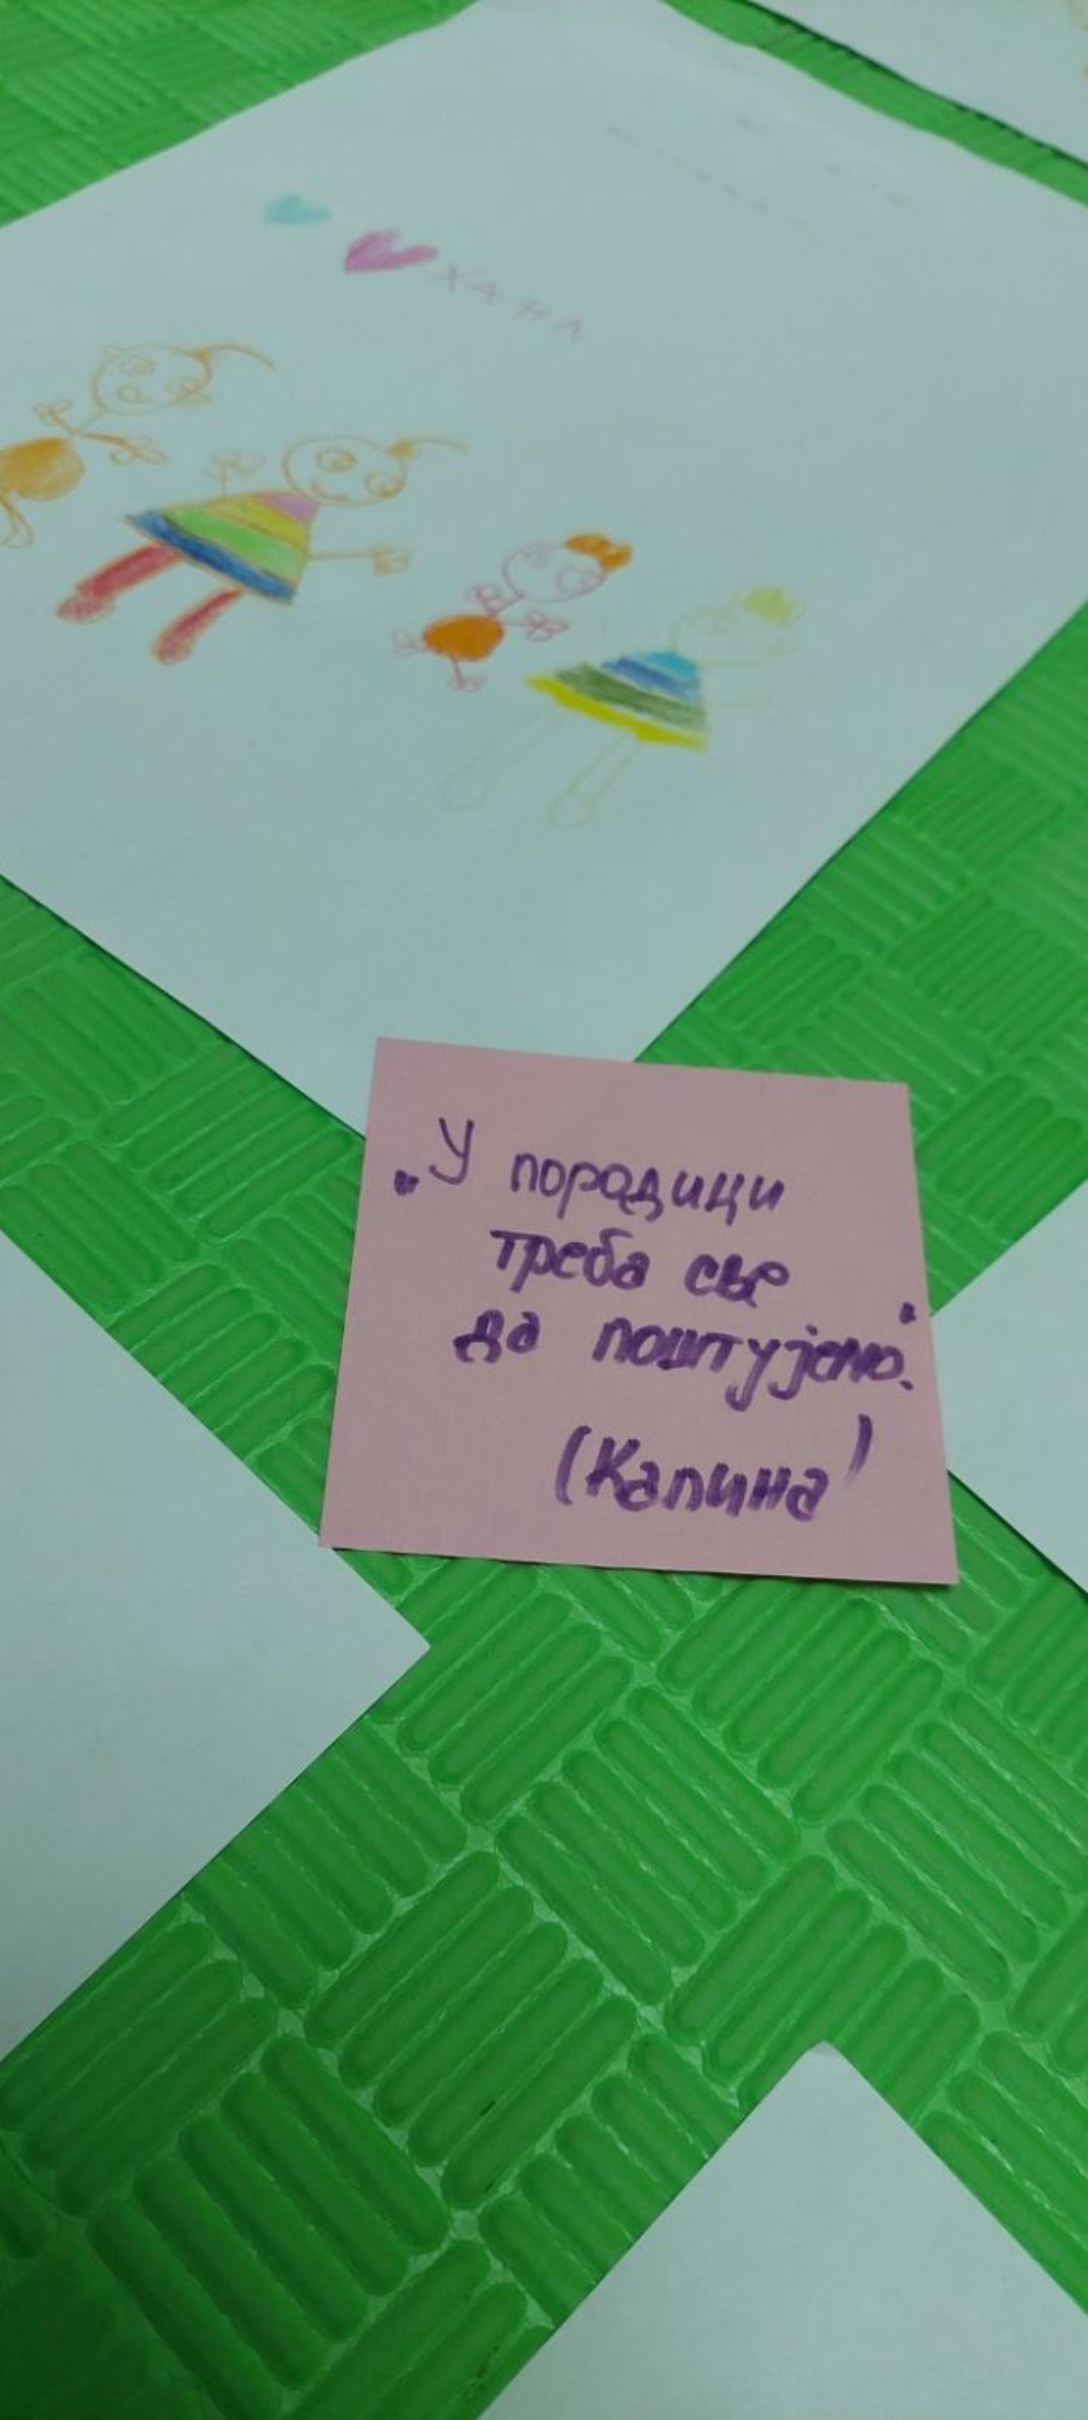 ХАНА
„У породици
треба све
да поштујемо."
(Калина)